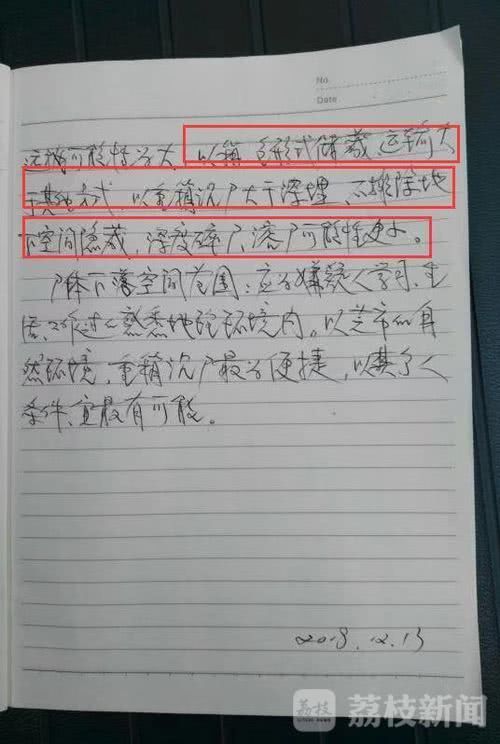 No.
Date
远抛可能性为大，以箱、包形式储藏、运输大
于其他方式，以重箱沉尸大于深埋，不排除地
下空间隐藏，深度碎尸、溶尸可能性更小。
尸体下落空间范围：应为嫌疑人学习、生
活、工作过之熟悉地理环境内。以芝市的自
然环境，重箱沉尸最为便捷，以其个人
条件、宜最有可能。
2018.12.13
荔枝
荔枝新闻